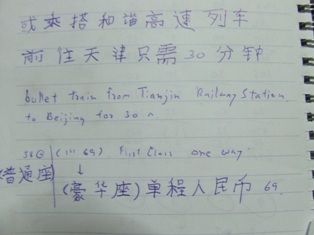 或乘搭和谐高速列车
前往天津只需30分钟
bullet train from Tianjin Railway Station
to Beijing for 30 m
58@ (111 69) First Class one way
普通座 ↓
(豪华座)单程人民币 69.